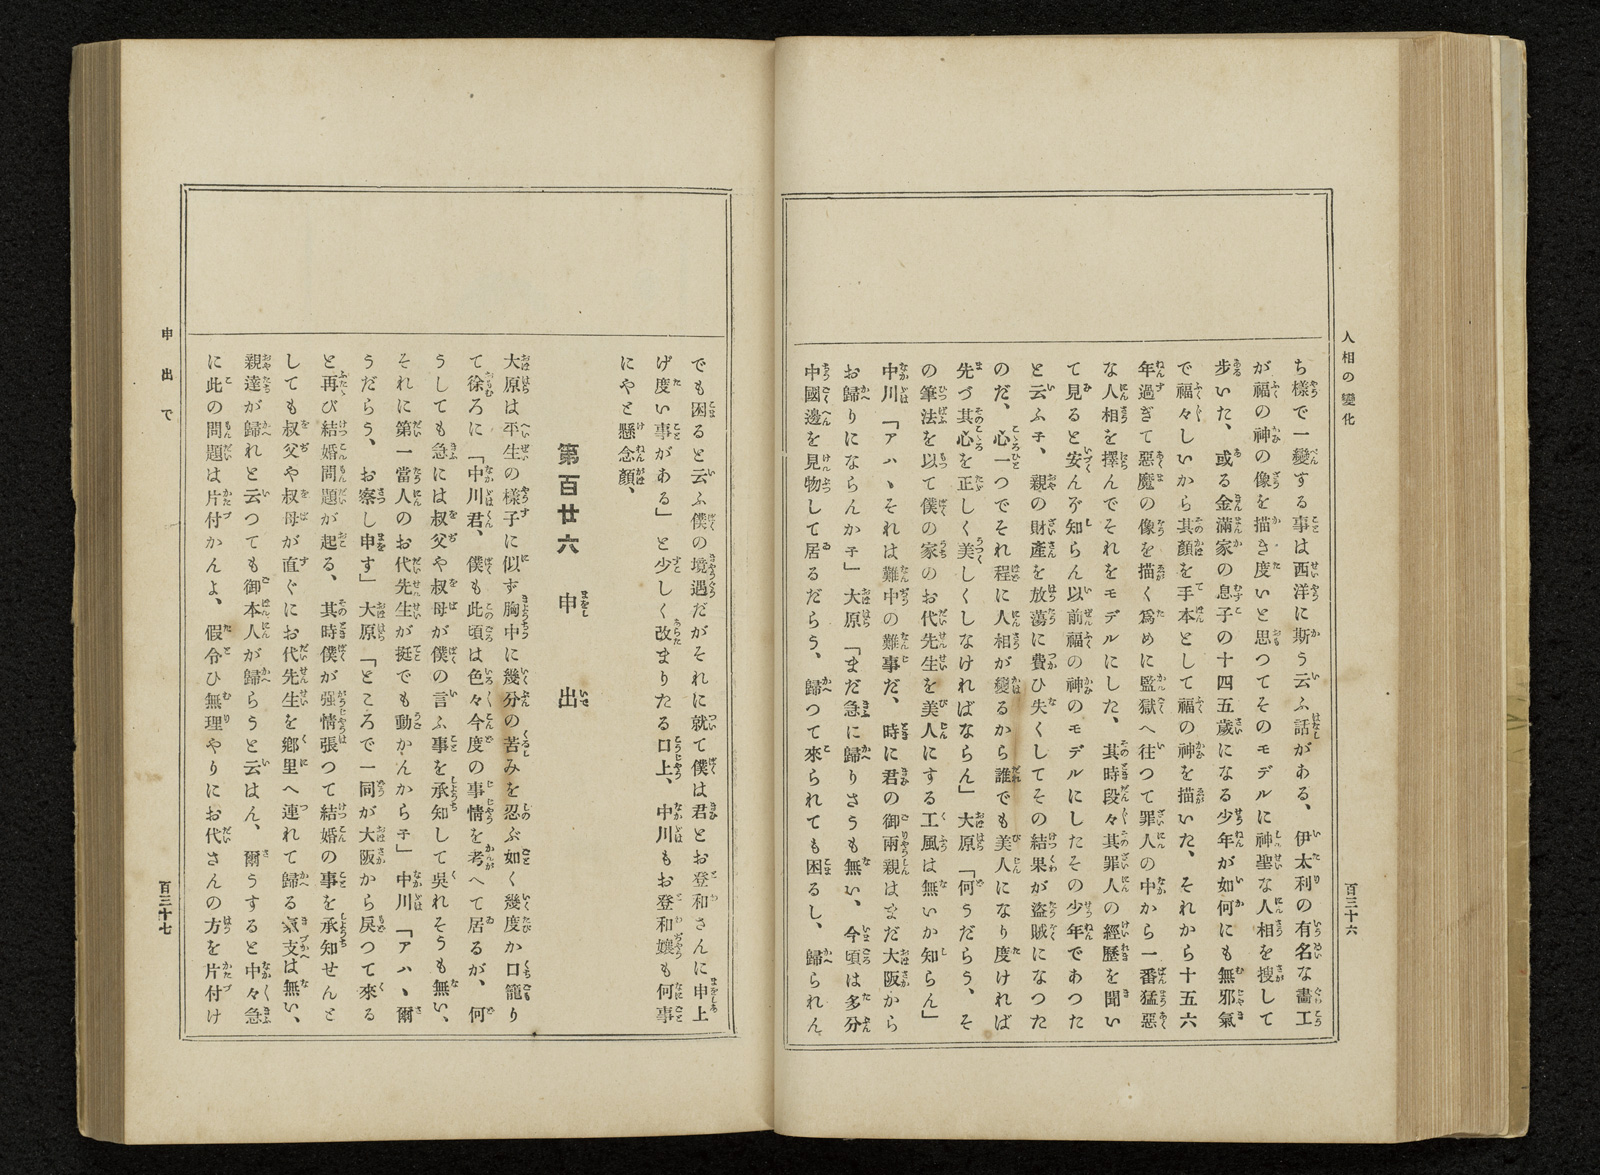 人相の變化
百三十六
ち樣で一變する事は西洋に斯う云ふ話がある、伊太利の有名な畫工
が福の神の像を描き度いと思つてそのモデルに神聖な人相を搜して
歩いた、或る金滿家の息子の十四五歲になる少年が如何にも無邪氣
で福々しいから其顏を手本として福の神を描いた、それから十五六
年過ぎて惡魔の像を描く爲めに監獄へ往つて罪人の中から一番猛惡
な人相を擇んでそれをモデルにした、其時段々其罪人の經歷を聞い
て見ると安んぞ知らん以前福の神のモデルにしたその少年であつた
と云ふ子、親の財產を放蕩に費ひ失くしてその結果が盜賊になつた
のだ、心一つでそれ程に人相が變るから誰でも美人になり度ければ
先づ其心を正しく美しくしなければならん」大原「何うだらう、そ
の筆法を以て僕の家のお代先生を美人にする工風は無いか知らん」
中川「アハヽそれは難中の難事だ、時に君の御兩親はまだ大阪から
お歸りにならんか子」大原「まだ急に歸りさうも無い、今頃は多分
中國邊を見物して居るだらう、歸つて來られても困るし、歸られん
でも困ると云ふ僕の境遇だがそれに就て僕は君とお登和さんに申上
げ度い事がある」と少しく改まりたる口上、中川もお登和孃も何事
にやと懸念顏、
第百廿六　申出
大原は平生の樣子に似ず胸中に幾分の苦みを忍ぶ如く幾度か口籠り
て徐ろに「中川君、僕も此頃は色々今度の事情を考へて居るが、何
うしても急には叔父や叔母が僕の言ふ事を承知して吳れそうも無い、
それに第一當人のお代先生が挺でも動かんから子」中川「アハヽ爾
うだらう、お察し申す」大原「ところで一同が大阪から戾つて來る
と再び結婚問題が起る、其時僕が强情張つて結婚の事を承知せんと
しても叔父や叔母が直ぐにお代先生を鄕里へ連れて歸る氣支は無い、
親達が歸れと云つても御本人が歸らうと云はん、爾うすると中々急
に此の問題は片付かんよ、假令ひ無理やりにお代さんの方を片付け
申出で
百三十七